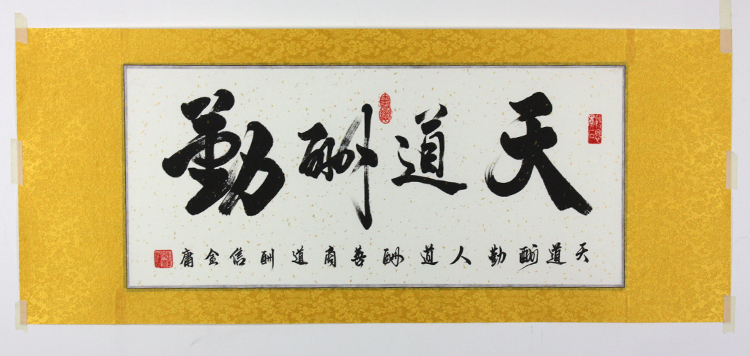 天道酬勤
天道酬勤人道酬善商道酬信